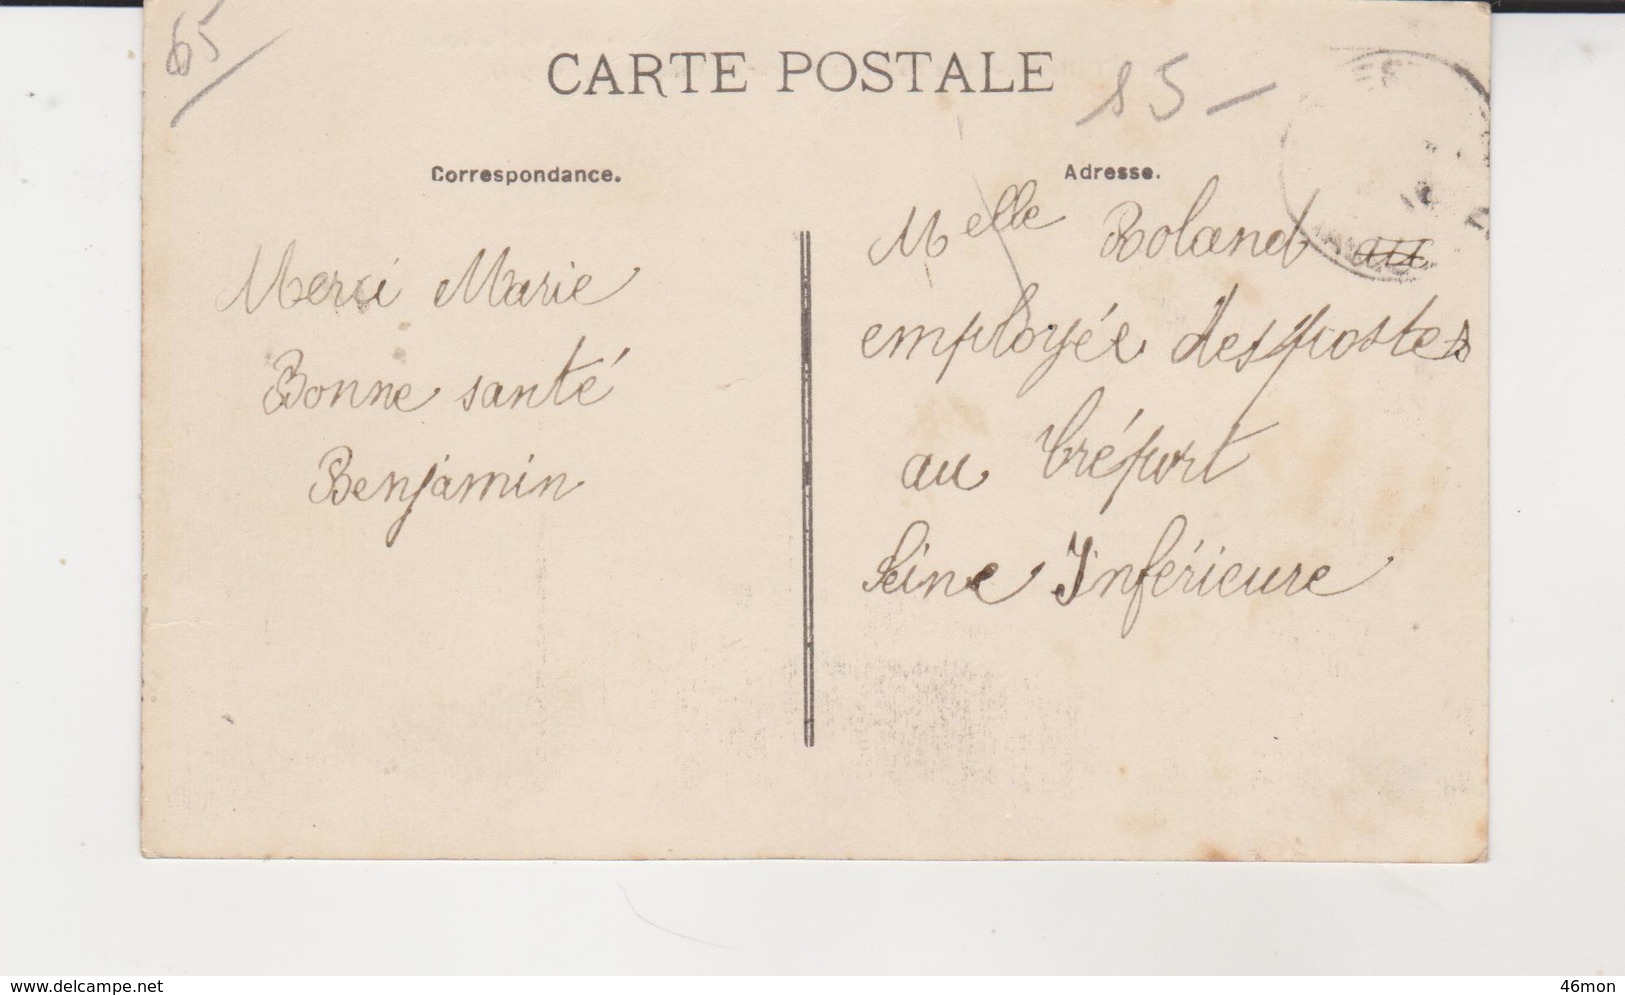 65
CARTE POSTALE
85-
Correspondance.
Merci Marie
Bonne santé
Benjamin
Adresse.
Melle Roland au
employée des postes
au Tréport
Seine Inférieure
www.delcampe.net
46mon